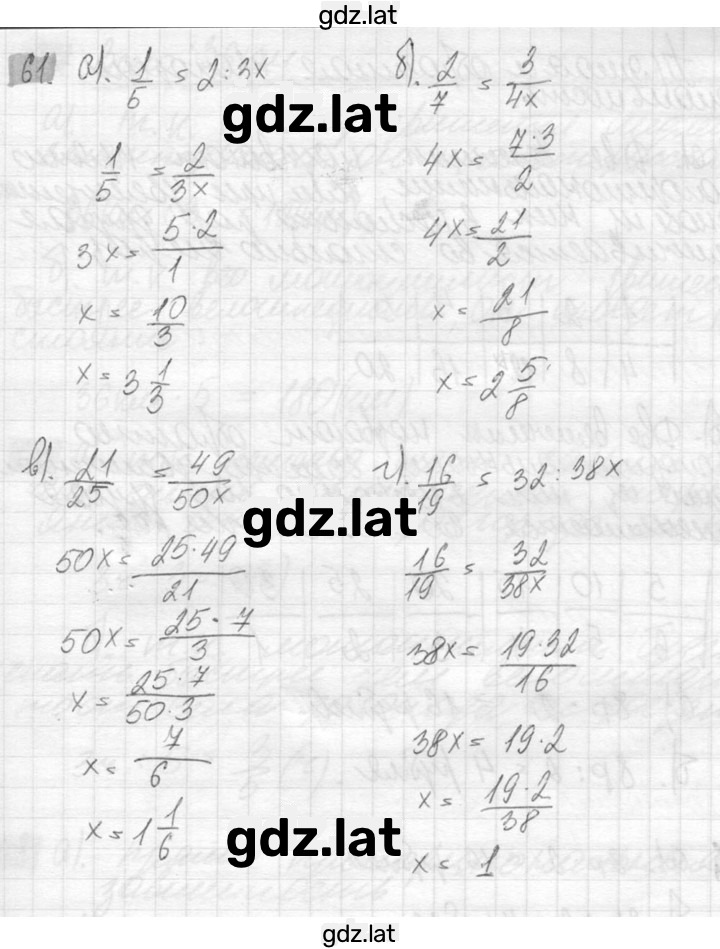 gdz.lat
61. а). 1/5 = 2 : 3x
gdz.lat
1/5 = 2/3x
3x = 5·2/1
x = 10/3
x = 3 1/3
б). 2/7 = 3/4x
4x = 7·3/2
4x = 21/2
x = 21/8
x = 2 5/8
в). 21/25 = 49/50x
gdz.lat
50x = 25·49/21
50x = 25·7/3
x = 25·7/50·3
x = 7/6
x = 1 1/6
gdz.lat
г). 16/19 = 32 : 38x
16/19 = 32/38x
38x = 19·32/16
38x = 19·2
x = 19·2/38
x = 1
gdz.lat